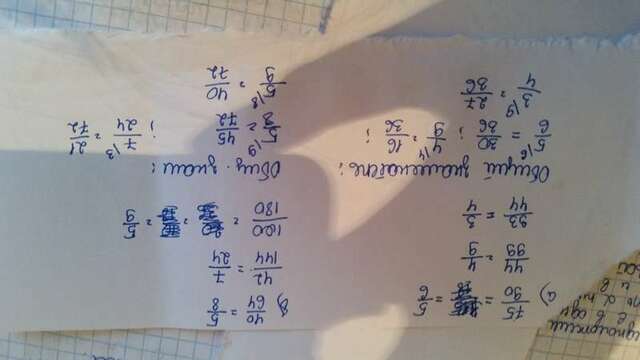 а) 75/90 = 5/6
44/99 = 4/9
33/44 = 3/4
Общий знаменатель:
5/6 \6 = 30/36 ; 4/9 \4 = 16/36 ;
3/4 \9 = 27/36
в) 40/64 = 5/8
42/144 = 7/24
100/180 = 5/9
Общ. знам:
5/8 \9 = 45/72 ; 7/24 \3 = 21/72
5/9 \8 = 40/72